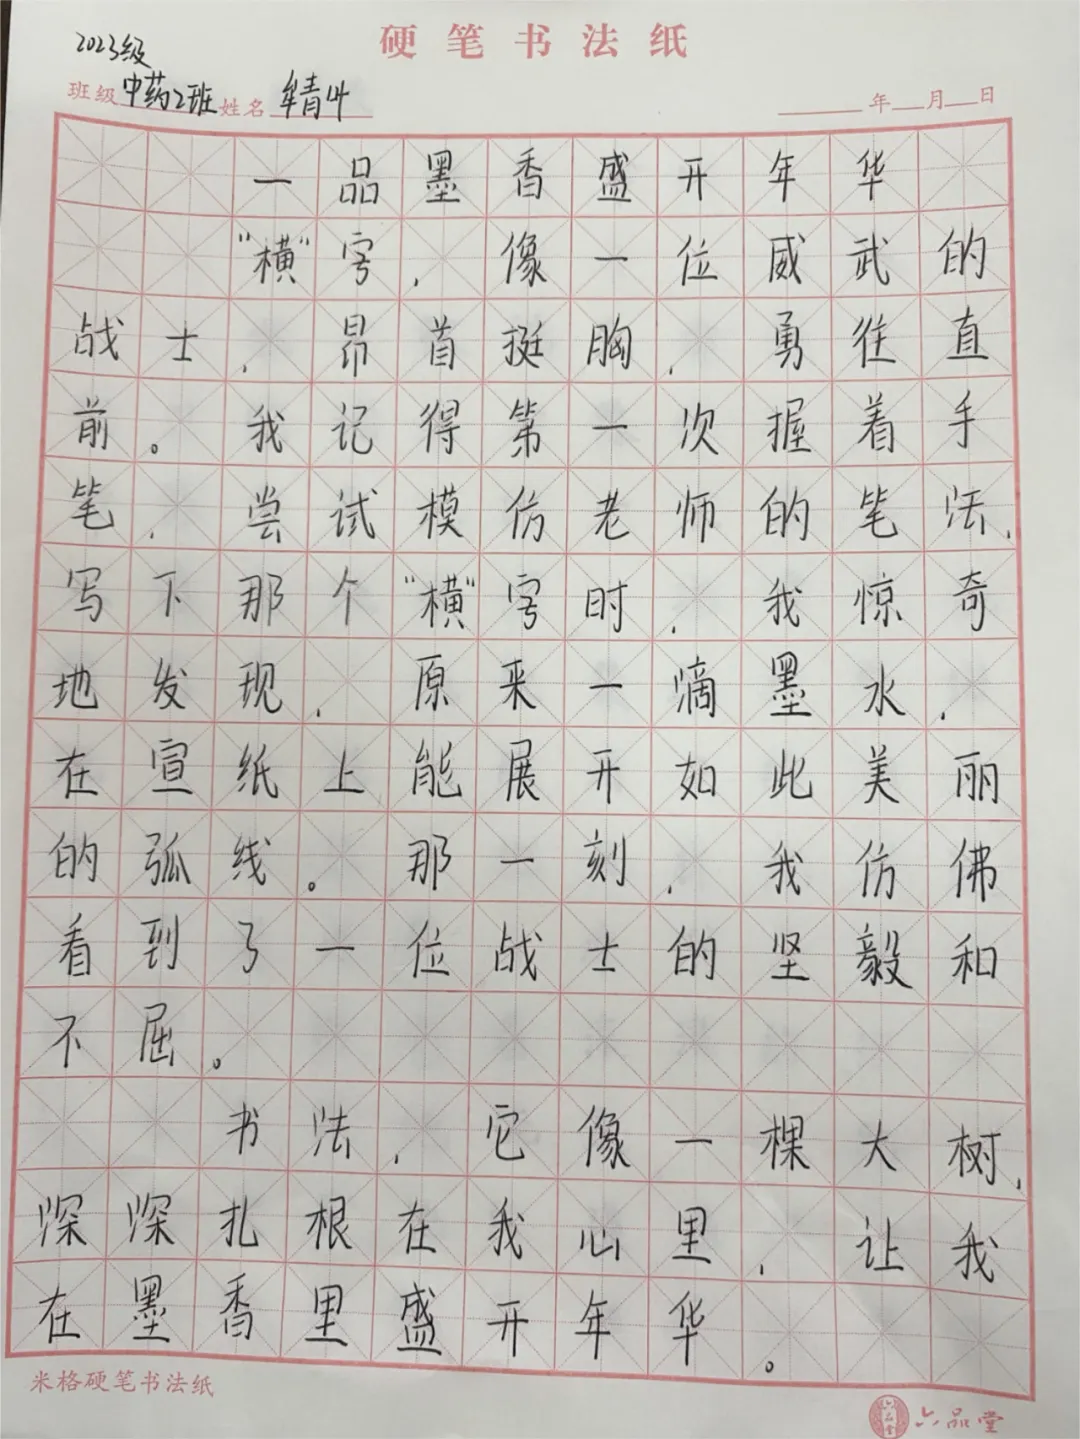 硬笔书法纸
2023级
班级 中药2班 姓名 牟青叶 年 月 日
一品墨香盛开年华
“横”字，像一位威武的
战士，昂首挺胸，勇往直
前。我记得第一次握着手
笔，尝试模仿老师的笔法，
写下那个“横”字时，我惊奇
地发现，原来一滴墨水，
在宣纸上能展开如此美丽
的弧线。那一刻，我仿佛
看到了一位战士的坚毅和
不屈。
书法，它像一棵大树，
深深扎根在我心里，让我
在墨香里盛开年华。
米格硬笔书法纸
六品堂